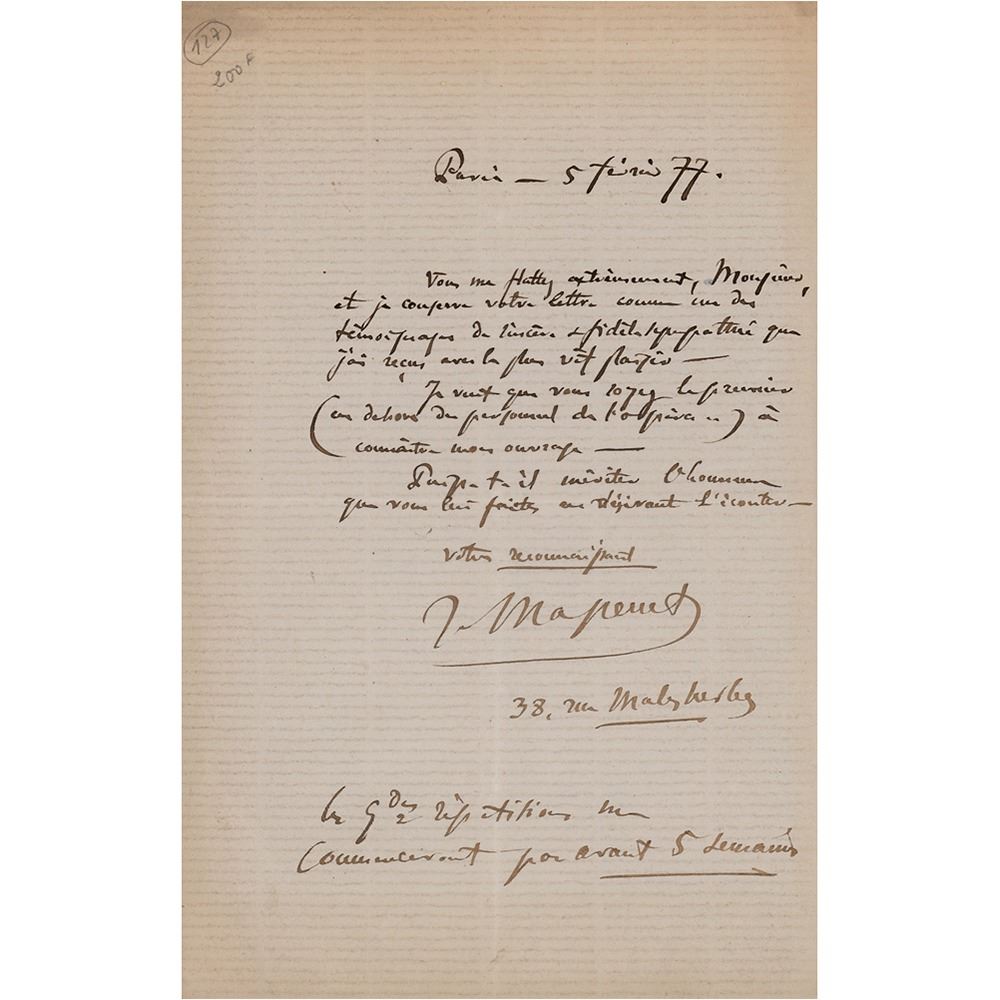 127
200 F
Paris — 5 février 77.
Vous me flattez extrêmement, Monsieur,
et je conserve votre lettre comme un des
témoignages de sincère & fidèle sympathie que
j'ai reçus avec le plus vif plaisir —
Je veux que vous soyez le premier
(en dehors du personnel de l'opéra ..) à
connaître mon ouvrage —
Puisse-t-il mériter l'honneur
que vous lui faites en désirant l'écouter —
votre reconnaissant
J. Massenet
38, rue Malesherbes
les Gdes répétitions ne
commenceront pas avant 5 semaines